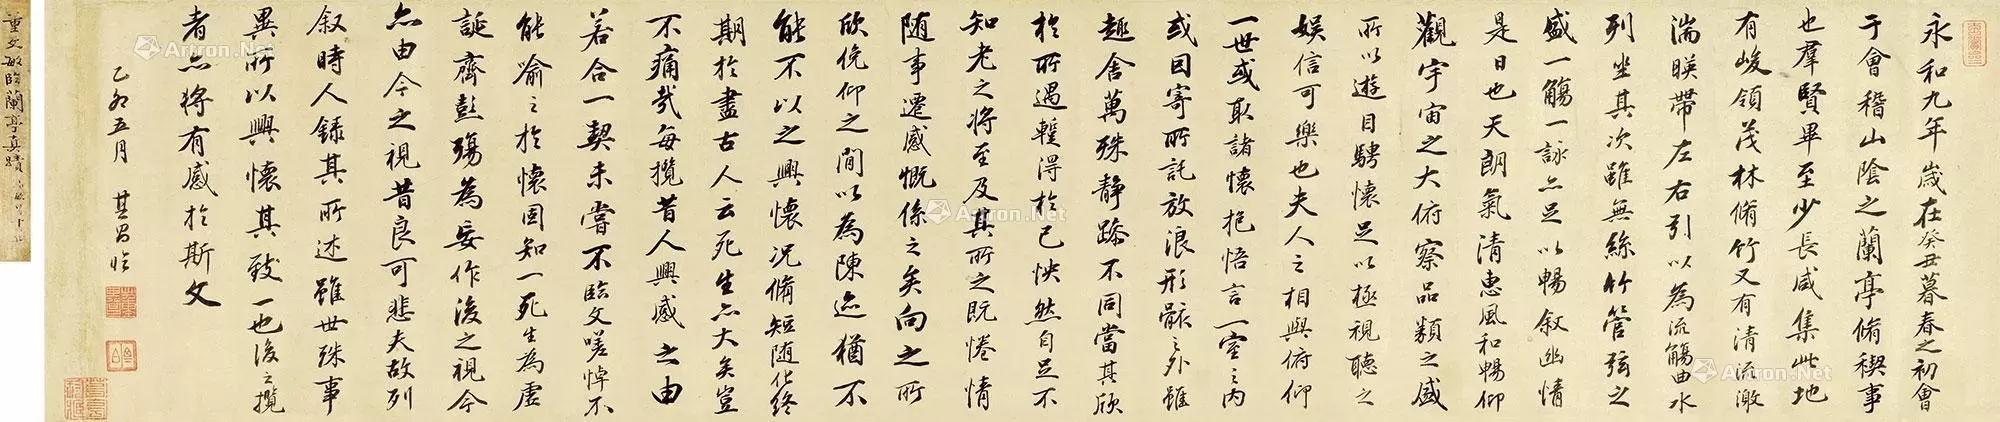 永和九年歲在癸丑暮春之初會
于會稽山陰之蘭亭脩稧事
也羣賢畢至少長咸集此地
有峻領茂林脩竹又有清流激
湍暎帶左右引以為流觴曲水
列坐其次雖無絲竹管弦之
盛一觴一詠亦足以暢敘幽情
是日也天朗氣清惠風和暢仰
觀宇宙之大俯察品類之盛
所以遊目騁懷足以極視聽之
娛信可樂也夫人之相與俯仰
一世或取諸懷抱悟言一室之內
或因寄所託放浪形骸之外雖
趣舍萬殊靜躁不同當其欣
於所遇蹔得於己怏然自足不
知老之將至及其所之既惓情
隨事遷感慨係之矣向之所
欣俛仰之間以為陳迹猶不
能不以之興懷況脩短隨化終
期於盡古人云死生亦大矣豈
不痛哉每攬昔人興感之由
若合一契未嘗不臨文嗟悼不
能喻之於懷固知一死生為虛
誕齊彭殤為妄作後之視今
亦由今之視昔良可悲夫故列
敘時人錄其所述雖世殊事
異所以興懷其致一也後之攬
者亦將有感於斯文
乙卯五月 其昌臨
董文敏臨蘭亭真蹟
Artron.Net
Artron.Net
Artron.Net
Artron.Net
Artron.Net
Artron.Net